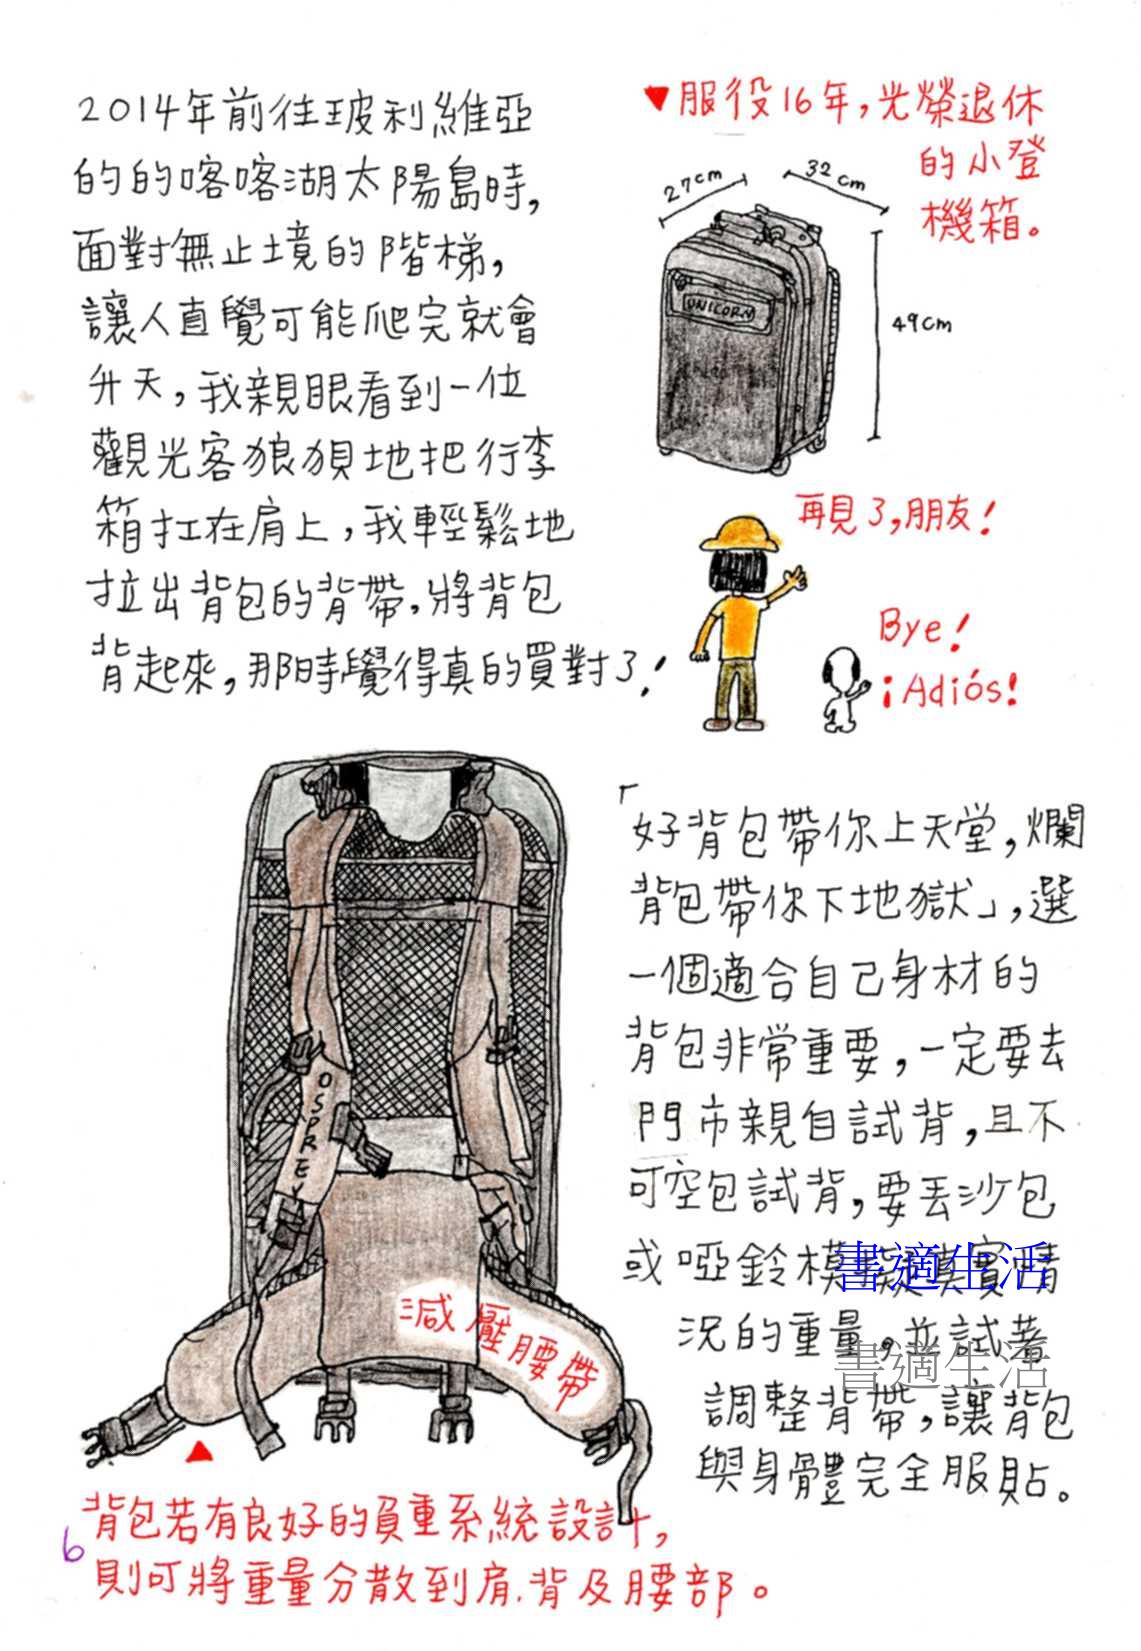 2014年前往玻利維亞
的的喀喀湖太陽島時,
面對無止境的階梯,
讓人直覺可能爬完就會
升天,我親眼看到一位
觀光客狼狽地把行李
箱扛在肩上,我輕鬆地
拉出背包的背帶,將背包
背起來,那時覺得真的買對了!
▼服役16年,光榮退休
的小登
機箱。
27cm
32cm
49cm
UNICORN
再見了,朋友!
Bye!
¡Adiós!
OSPREY
減壓腰帶
「好背包帶你上天堂,爛
背包帶你下地獄」,選
一個適合自己身材的
背包非常重要,一定要去
門市親自試背,且不
可空包試背,要丟沙包
或啞鈴模擬真實情
況的重量。並試著
調整背帶,讓背包
與身體完全服貼。
書適生活
書適生活
▲
背包若有良好的負重系統設計,
則可將重量分散到肩.背及腰部。
6